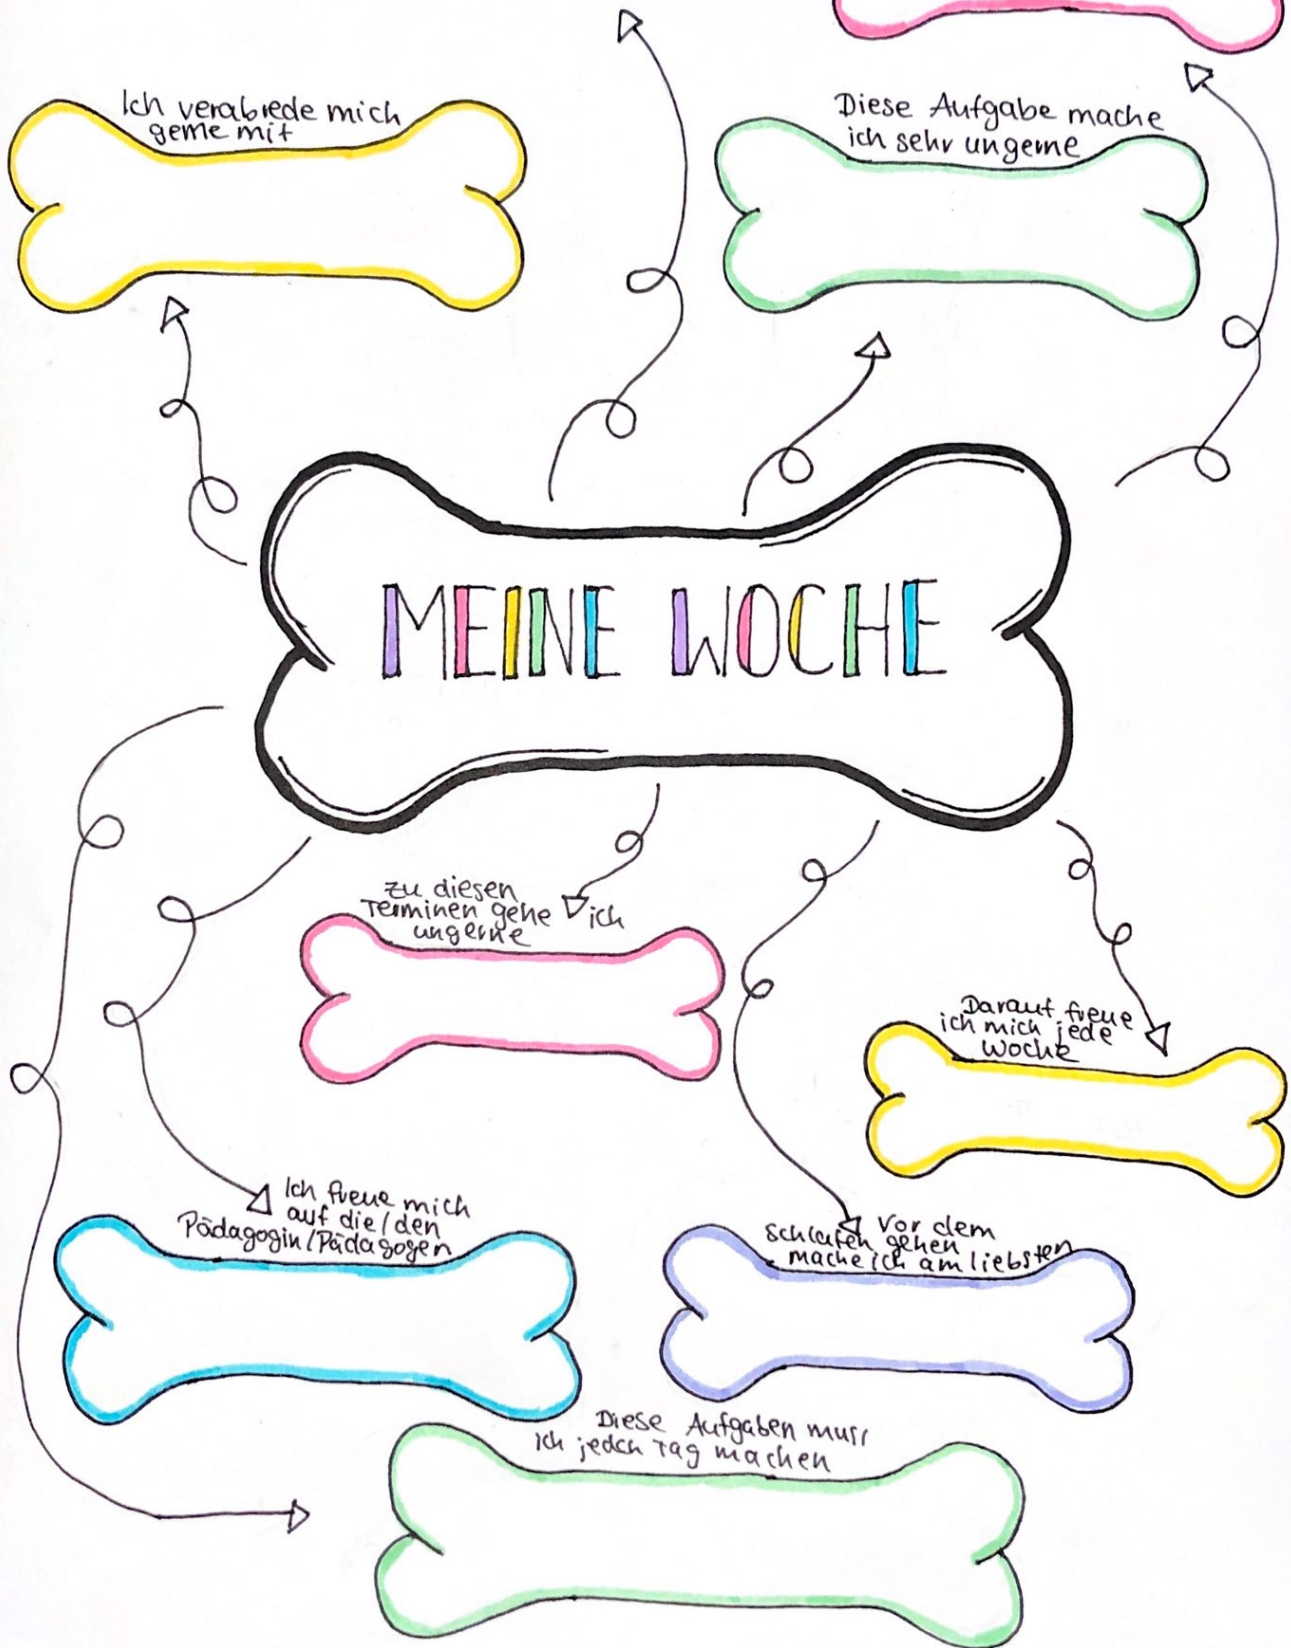 Ich verabrede mich
gerne mit
Diese Aufgabe mache
ich sehr ungerne
MEINE WOCHE
zu diesen
Terminen gehe ich
ungerne
Darauf freue
ich mich jede
Woche
Ich freue mich
auf die/den
Pädagogin/Pädagogen
Vor dem
Schlafen gehen
mache ich am liebsten
Diese Aufgaben muss
ich jeden Tag machen